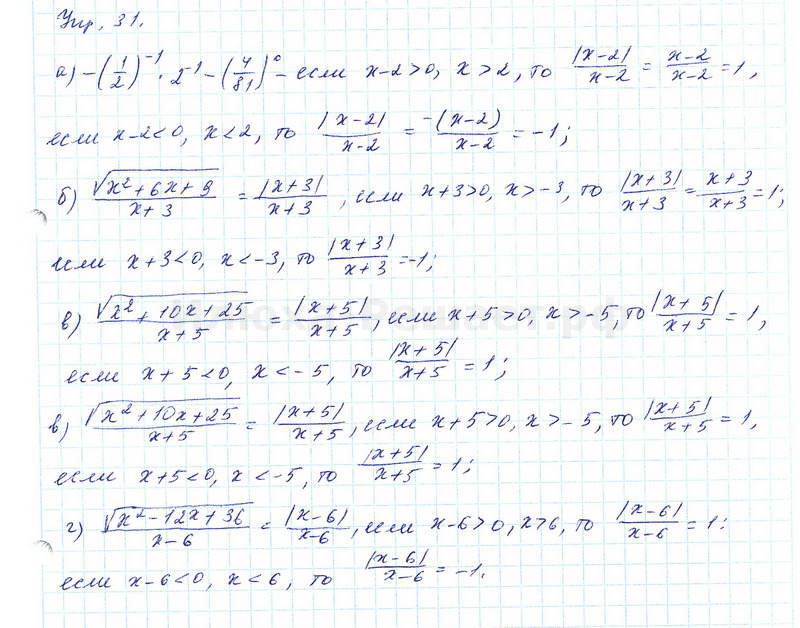 Упр. 31.
а) -(1/2)^-1 · 2^-1 - (4/81)^0 - если x-2>0, x>2, то |x-2|/x-2 = x-2/x-2 = 1,
если x-2<0, x<2, то |x-2|/x-2 = -(x-2)/x-2 = -1;
б) √x²+6x+9/x+3 = |x+3|/x+3, если x+3>0, x>-3, то |x+3|/x+3 = x+3/x+3 = 1;
если x+3<0, x<-3, то |x+3|/x+3 = -1;
в) √x²+10x+25/x+5 = |x+5|/x+5, если x+5>0, x>-5, то |x+5|/x+5 = 1,
если x+5<0, x<-5, то |x+5|/x+5 = 1;
в) √x²+10x+25/x+5 = |x+5|/x+5, если x+5>0, x>-5, то |x+5|/x+5 = 1,
если x+5<0, x<-5, то |x+5|/x+5 = 1;
г) √x²-12x+36/x-6 = |x-6|/x-6, если x-6>0, x>6, то |x-6|/x-6 = 1:
если x-6<0, x<6, то |x-6|/x-6 = -1.